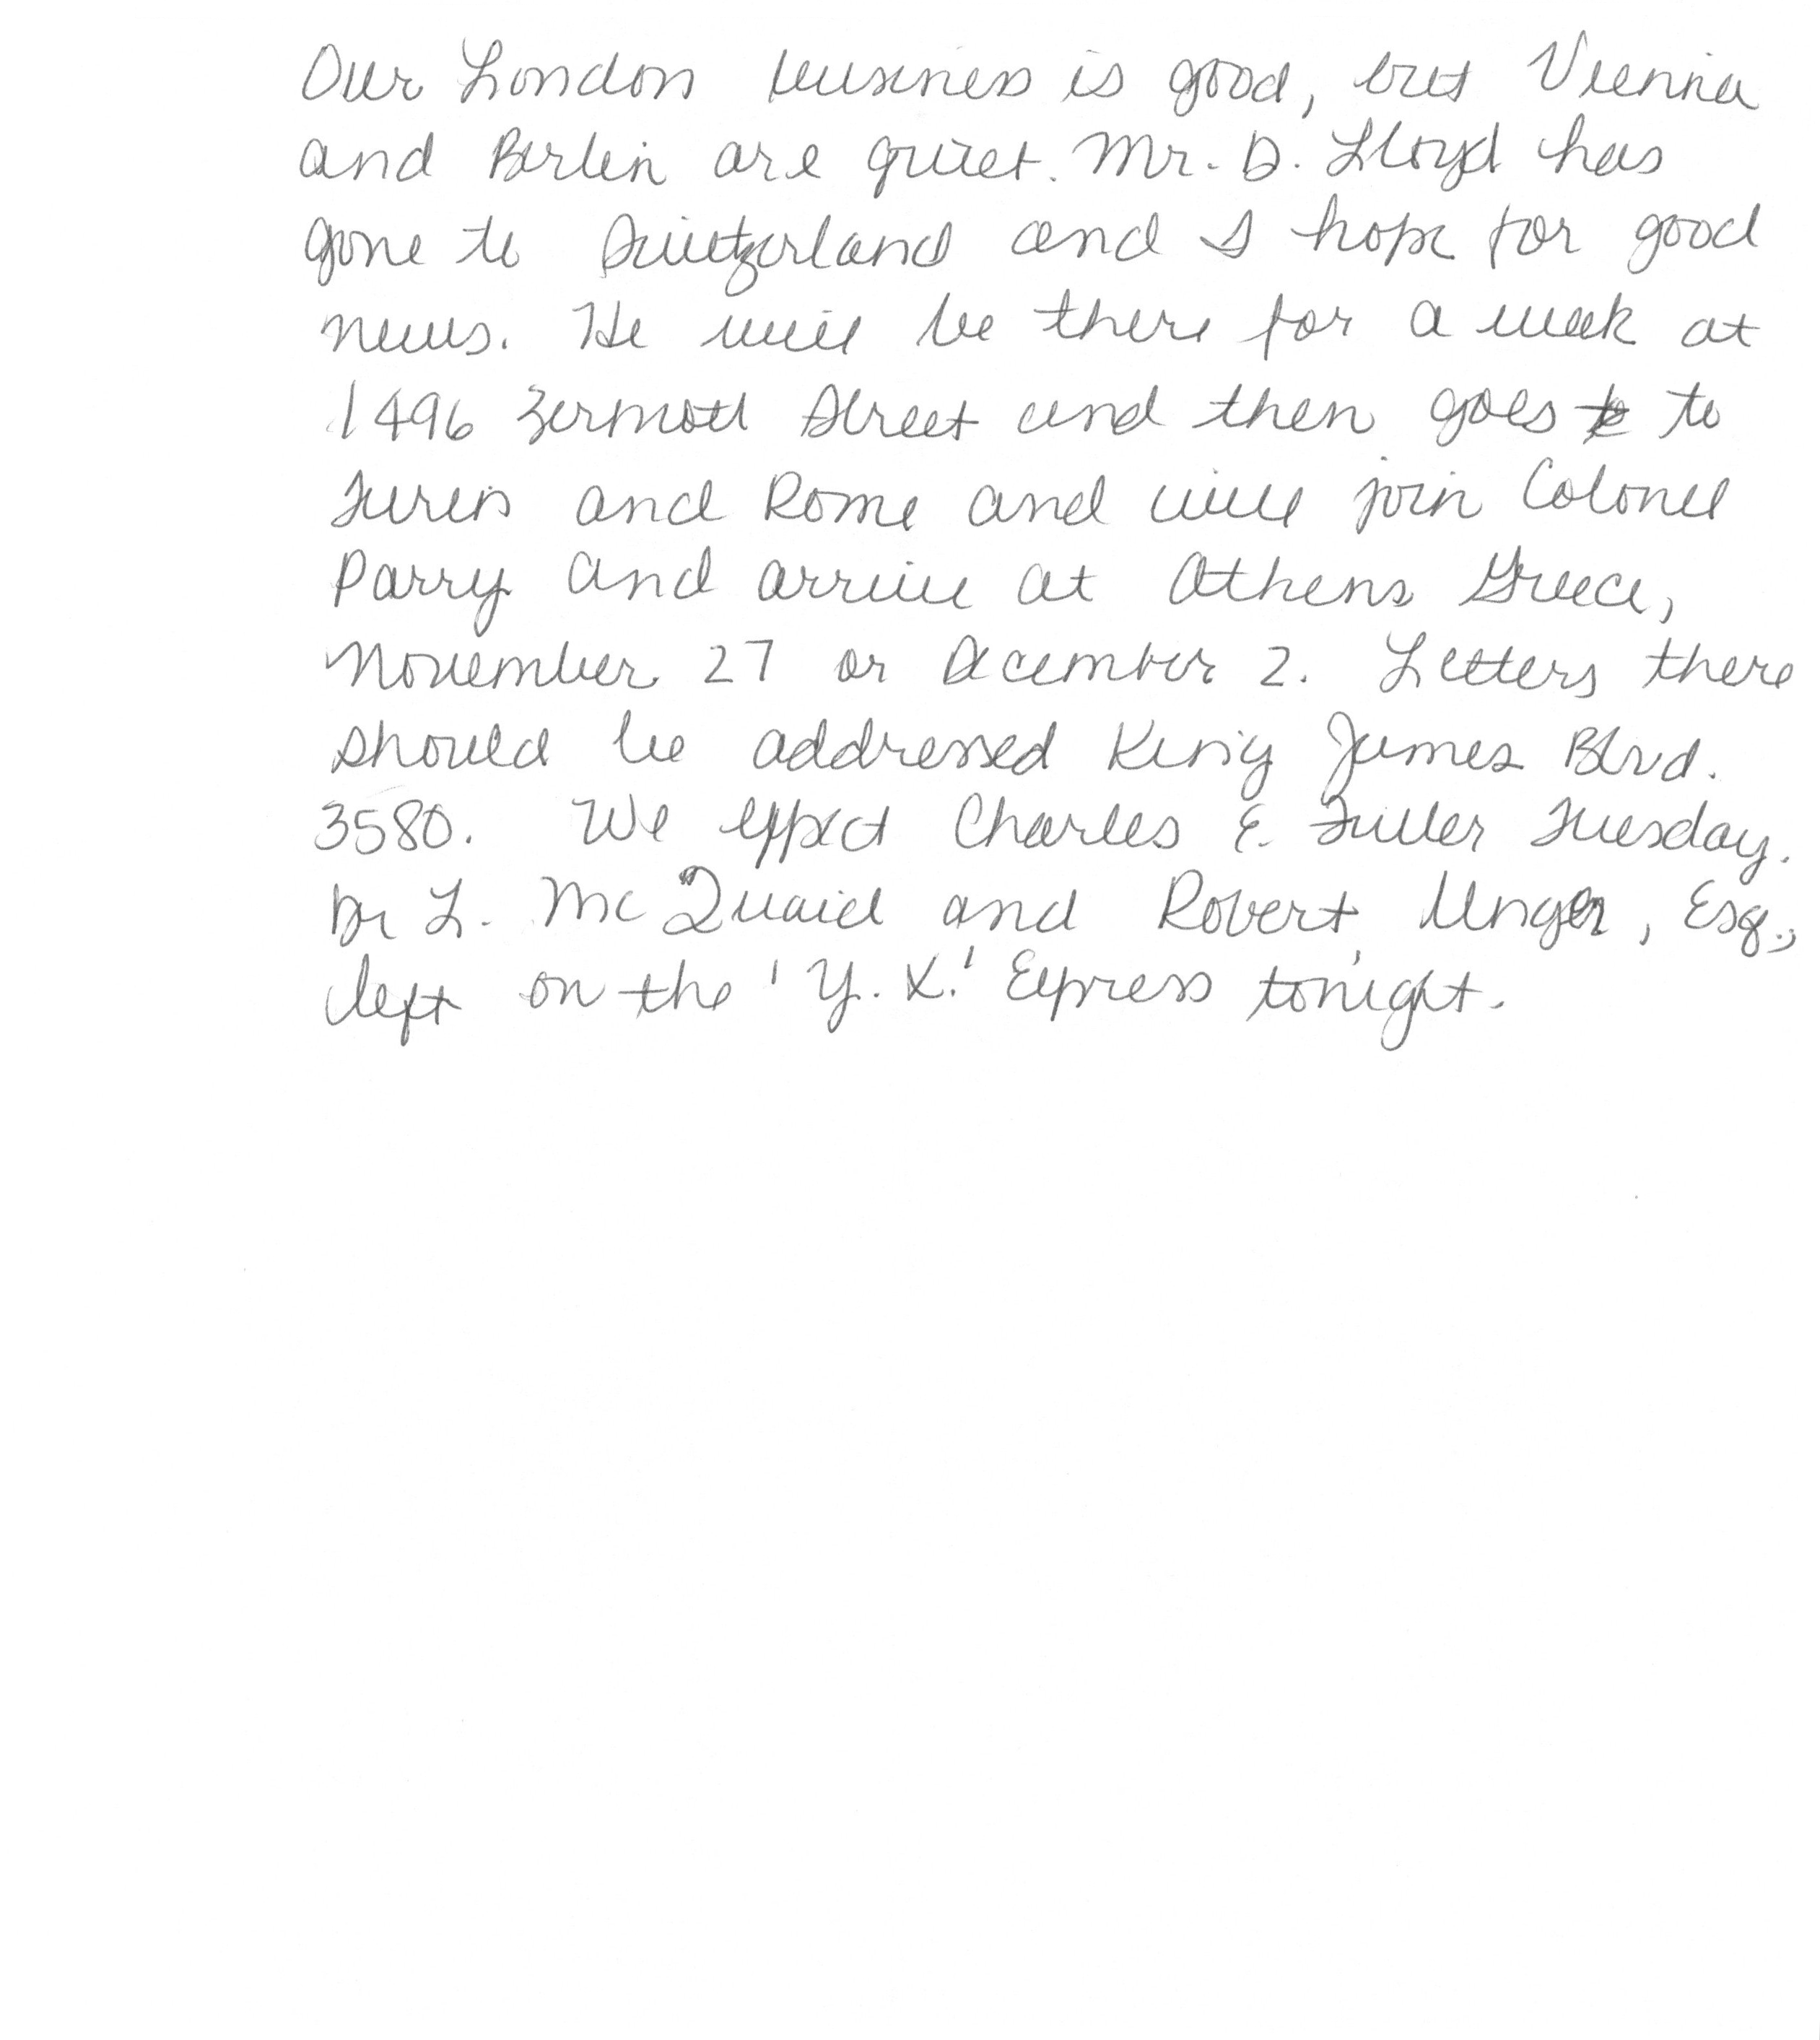 Our London business is good, but Vienna
and Berlin are quiet. Mr. D. Lloyd has
gone to Switzerland and I hope for good
news. He will be there for a week at
1496 Zermott Street and then goes to to
Turin and Rome and will join Colonel
Parry and arrive at Athens Greece,
November 27 or December 2. Letters there
should be addressed King James Blvd.
3580. We expect Charles E. Fuller Tuesday.
Dr L. McQuaid and Robert Unger, Esq.,
left on the 'Y. X.' Express tonight.